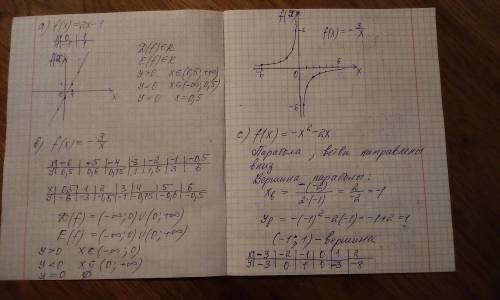 a) f(x)=2x-1
x | 0 | 1
y | -1 | 1
f(x)
x
D(f)∈R
E(f)∈R
y>0 x∈(0,5; +∞)
y<0 x∈(-∞; 0,5)
y=0 x=0,5
в) f(x) = -3/x
x | -6 | -5 | -4 | -3 | -2 | -1 | -0,5
y | 0,5 | 0,6 | 0,75 | 1 | 1,5 | 3 | 6
x | 0,5 | 1 | 2 | 3 | 4 | 5 | 6
y | -6 | -3 | -1,5 | -1 | -0,75 | -0,6 | -0,5
D(f) = (-∞; 0)∪(0; +∞)
E(f) = (-∞; 0)∪(0; +∞)
y>0 x∈(-∞; 0)
y<0 x∈(0; +∞)
y=0 ∅
f(x)
f(x)=-3/x
-6 0 6 x
-6
c) f(x)=-x²-2x
Парабола, ветви направлены
вниз
Вершина параболы:
Xв = -(-2)/2·(-1) = 2/-2 = -1
Yв = -(-1)²-2(-1) = -1+2 = 1
(-1; 1) - вершина
x | -3 | -2 | -1 | 0 | 1 | 2
y | -3 | 0 | 1 | 0 | -3 | -8